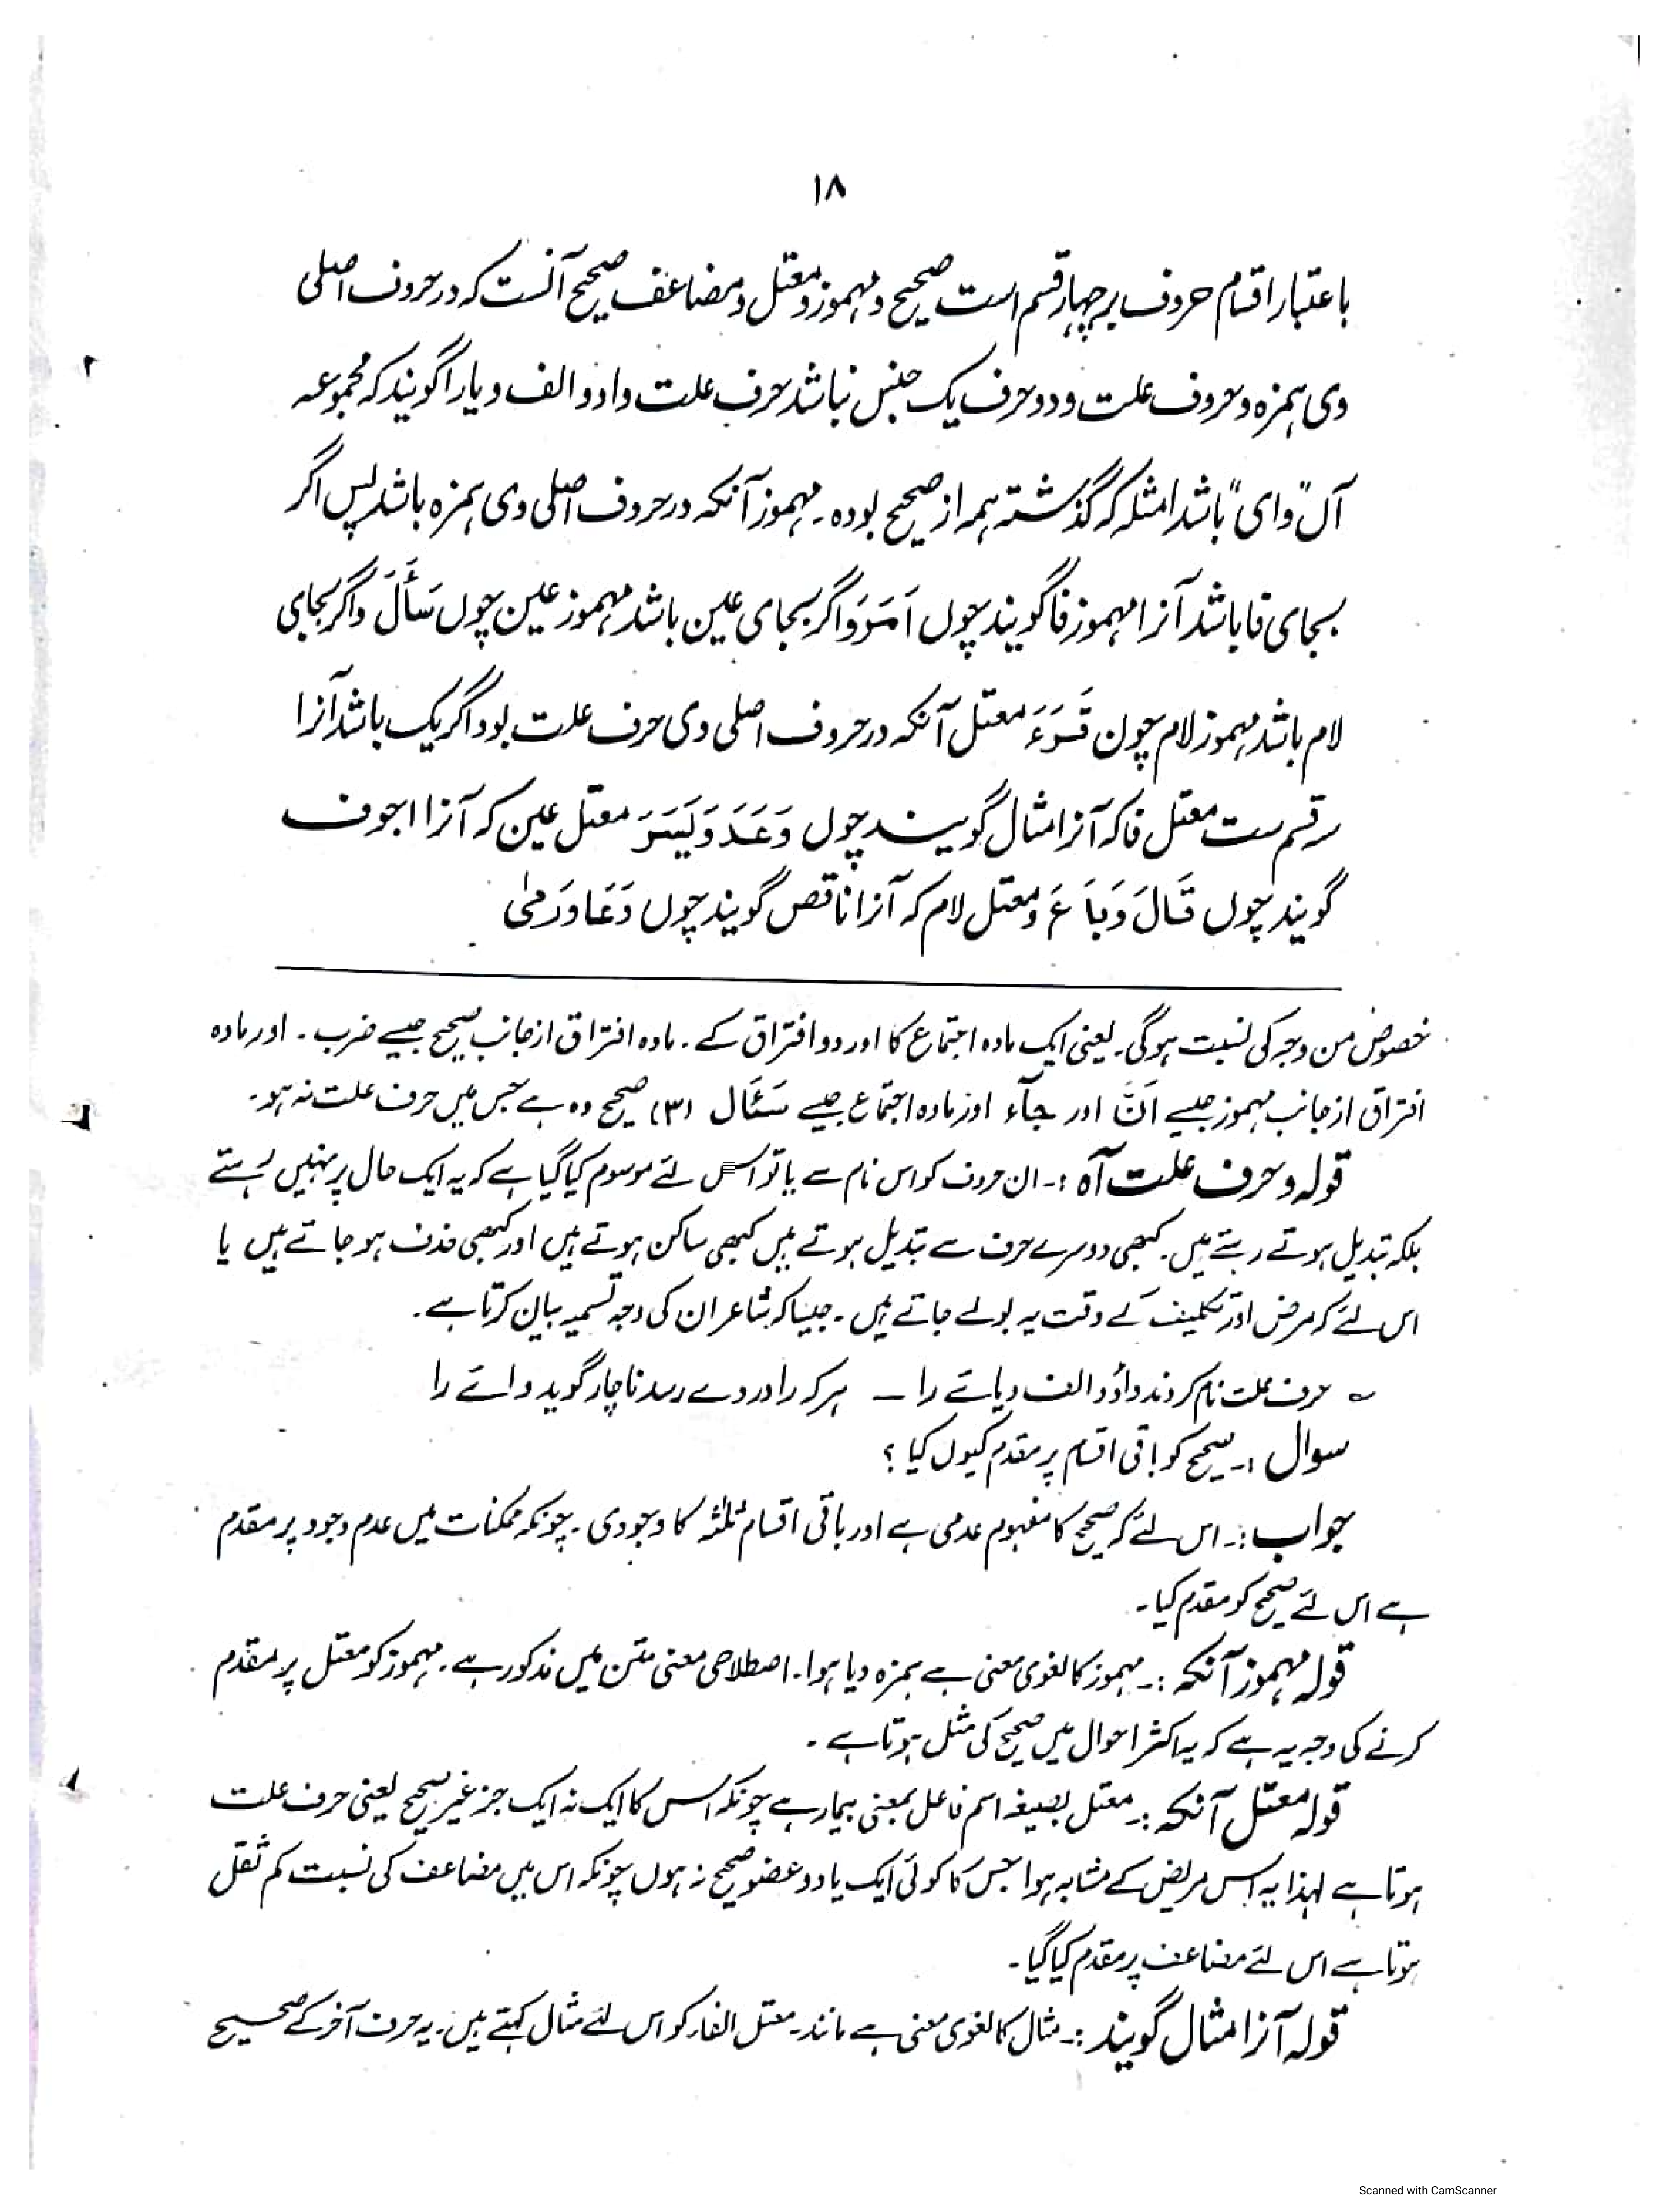 ۱۸
باعتبار اقسام حروف بر چہار قسم است صحیح و مہموز و معتل و مضاعف صحیح آنست کہ در حروف اصلی
وی ہمزہ و حروف علت و دو حرف یک جنس نباشد حرف علت واو و الف و یا را گویند کہ مجموعہ
آں "وای" باشد امثلہ کہ گذشتہ ہمہ از صحیح بودہ۔ مہموز آنکہ در حروف اصلی وی ہمزہ باشد پس اگر
بجای فا باشد آنرا مہموز فا گویند چوں اَمَرَ و اگر بجای عین باشد مہموز عین چوں سَأَلَ و اگر بجای
لام باشد مہموز لام چون قَرَءَ معتل آنکہ در حروف اصلی وی حرف علت بود اگر یک باشد آنرا
سہ قسم ست معتل فا کہ آنرا مثال گویند چوں وَعَدَ وَیَسَرَ معتل عین کہ آنرا اجوف
گویند چوں قَالَ وَبَاعَ و معتل لام کہ آنرا ناقص گویند چوں دَعَا وَرَمٰی
خصوص من وجہ کی نسبت ہوگی۔ یعنی ایک مادہ اجتماع کا اور دو افتراق کے۔ مادہ افتراق از جانب صحیح جیسے ضرب۔ اور مادہ
افتراق از جانب مہموز جیسے اَنَّ اور جآء اور مادہ اجتماع جیسے سَئَال (۳) صحیح وہ ہے جس میں حرف علت نہ ہو۔
قولہ و حرف علت آہ :۔ ان حروف کو اس نام سے یا تو اس لئے موسوم کیا گیا ہے کہ یہ ایک حال پر نہیں رہتے
بلکہ تبدیل ہوتے رہتے ہیں۔ کبھی دوسرے حرف سے تبدیل ہوتے ہیں کبھی ساکن ہوتے ہیں اور کبھی حذف ہو جاتے ہیں یا
اس لئے کہ مرض اور تکلیف کے وقت یہ بولے جاتے ہیں۔ جیسا کہ شاعر ان کی وجہ تسمیہ بیان کرتا ہے۔
؎ حرف علت نام کردند واؤ و الف و یائے را ــ ہر کہ را دردے رسد ناچار گوید وائے را
سوال :۔ صحیح کو باقی اقسام پر مقدم کیوں کیا ؟
جواب :۔ اس لئے کہ صحیح کا مفہوم عدمی ہے اور باقی اقسام ثلٰثہ کا وجودی۔ چونکہ ممکنات میں عدم وجود پر مقدم
ہے اس لئے صحیح کو مقدم کیا۔
قولہ مہموز آنکہ :۔ مہموز کا لغوی معنی ہے ہمزہ دیا ہوا۔ اصطلاحی معنی متن میں مذکور ہے۔ مہموز کو معتل پر مقدم
کرنے کی وجہ یہ ہے کہ یہ اکثر احوال میں صحیح کی مثل ہوتا ہے۔
قولہ معتل آنکہ :۔ معتل بصیغہ اسم فاعل بمعنی بیمار ہے چونکہ اس کا ایک نہ ایک جز غیر صحیح یعنی حرف علت
ہوتا ہے لہذا یہ اس مریض کے مشابہ ہوا جس کا کوئی ایک یا دو عضو صحیح نہ ہوں چونکہ اس میں مضاعف کی نسبت کم ثقل
ہوتا ہے اس لئے مضاعف پر مقدم کیا گیا۔
قولہ آنرا مثال گویند :۔ مثال کا لغوی معنی ہے مانند۔ معتل الفاء کو اس لئے مثال کہتے ہیں۔ یہ حرف آخر کے صحیح
Scanned with CamScanner